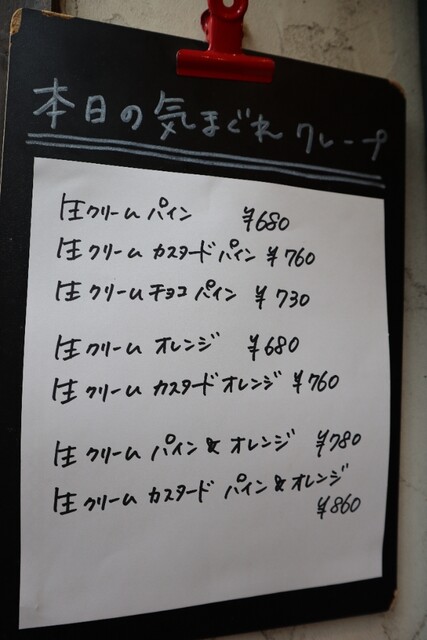 本日の気まぐれクレープ
生クリーム パイン ¥680
生クリーム カスタード パイン ¥760
生クリーム チョコ パイン ¥730
生クリーム オレンジ ¥680
生クリーム カスタード オレンジ ¥760
生クリーム パイン & オレンジ ¥780
生クリーム カスタード パイン & オレンジ
¥860